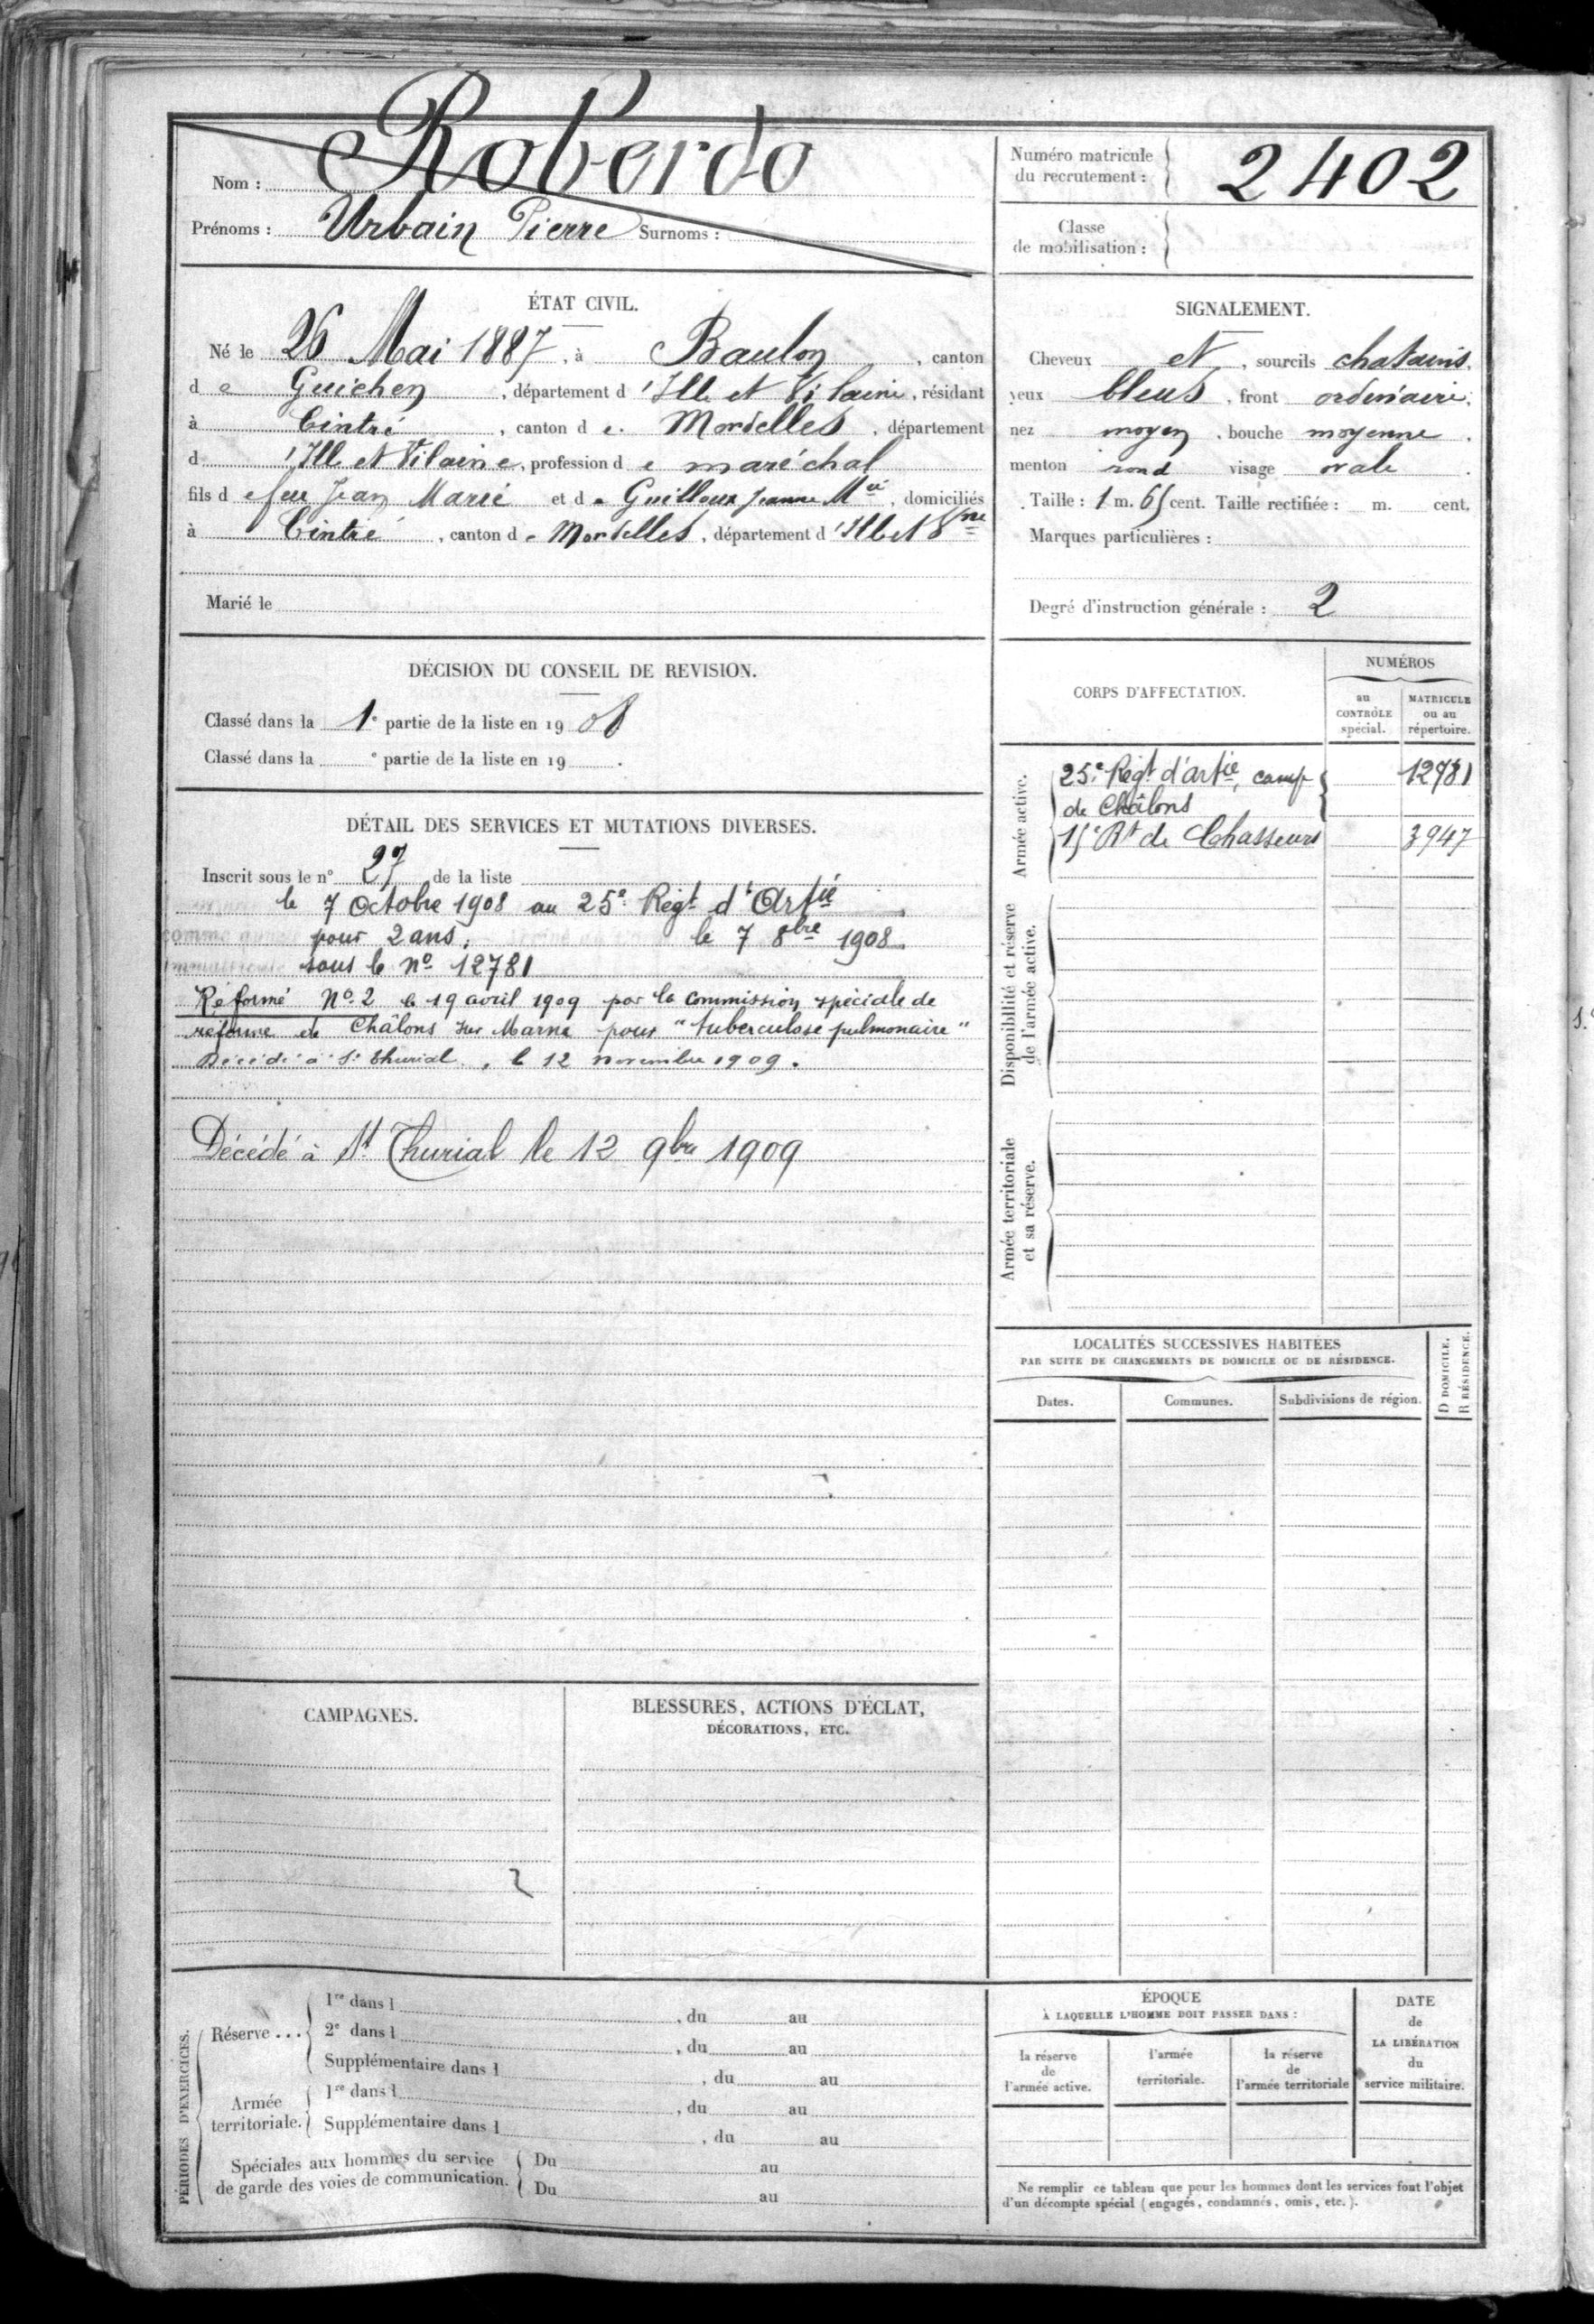 Nom : Roberdo
Prénoms : Urbain Pierre Surnoms :
Numéro matricule
du recrutement : 2402
Classe
de mobilisation :
ÉTAT CIVIL.
Né le 26 Mai 1887, à Baulon, canton
de Guichen, département d'Ille et Vilaine, résidant
à Cintré, canton de Mordelles, département
d'Ille et Vilaine, profession de maréchal
fils de feu Jean Marie et de Guilloux Jeanne Mie, domiciliés
à Cintré, canton de Mordelles, département d'Ille et Vne
Marié le
SIGNALEMENT.
Cheveux et, sourcils chatains.
yeux bleus, front ordinaire.
nez moyen, bouche moyenne.
menton rond visage ovale.
Taille : 1 m. 65 cent. Taille rectifiée : m. cent.
Marques particulières :
Degré d'instruction générale : 2
DÉCISION DU CONSEIL DE REVISION.
Classé dans la 1e partie de la liste en 1908
Classé dans la e partie de la liste en 19 .
DÉTAIL DES SERVICES ET MUTATIONS DIVERSES.
Inscrit sous le n° 27 de la liste
le 7 Octobre 1908 au 25e Régt d'Artie
pour 2 ans. le 7 8bre 1908.
sous le No 12781
Réformé No 2 le 19 avril 1909 par la Commission spéciale de
réforme de Châlons sur Marne pour "tuberculose pulmonaire"
Décédé à St Thurial, le 12 novembre 1909.
Décédé à St Thurial le 12 9bre 1909
CORPS D'AFFECTATION.
NUMÉROS
au
CONTRÔLE
spécial.
MATRICULE
ou au
répertoire.
Armée active.
25e Régt d'artie, camp
de Châlons 12781
15e Rt de Chasseurs 3947
Disponibilité et réserve
de l'armée active.
Armée territoriale
et sa réserve.
LOCALITÉS SUCCESSIVES HABITÉES
PAR SUITE DE CHANGEMENTS DE DOMICILE OU DE RÉSIDENCE.
Dates.
Communes.
Subdivisions de région.
D DOMICILE.
R RÉSIDENCE.
CAMPAGNES.
BLESSURES, ACTIONS D'ÉCLAT,
DÉCORATIONS, ETC.
PÉRIODES D'EXERCICES.
Réserve ...
1re dans l , du au
2e dans l , du au
Supplémentaire dans l , du au
Armée
territoriale.
1re dans l , du au
Supplémentaire dans l , du au
Spéciales aux hommes du service
de garde des voies de communication.
Du au
Du au
ÉPOQUE
À LAQUELLE L'HOMME DOIT PASSER DANS :
la réserve
de
l'armée active.
l'armée
territoriale.
la réserve
de
l'armée territoriale
DATE
de
LA LIBÉRATION
du
service militaire.
Ne remplir ce tableau que pour les hommes dont les services font l'objet
d'un décompte spécial (engagés, condamnés, omis, etc.).